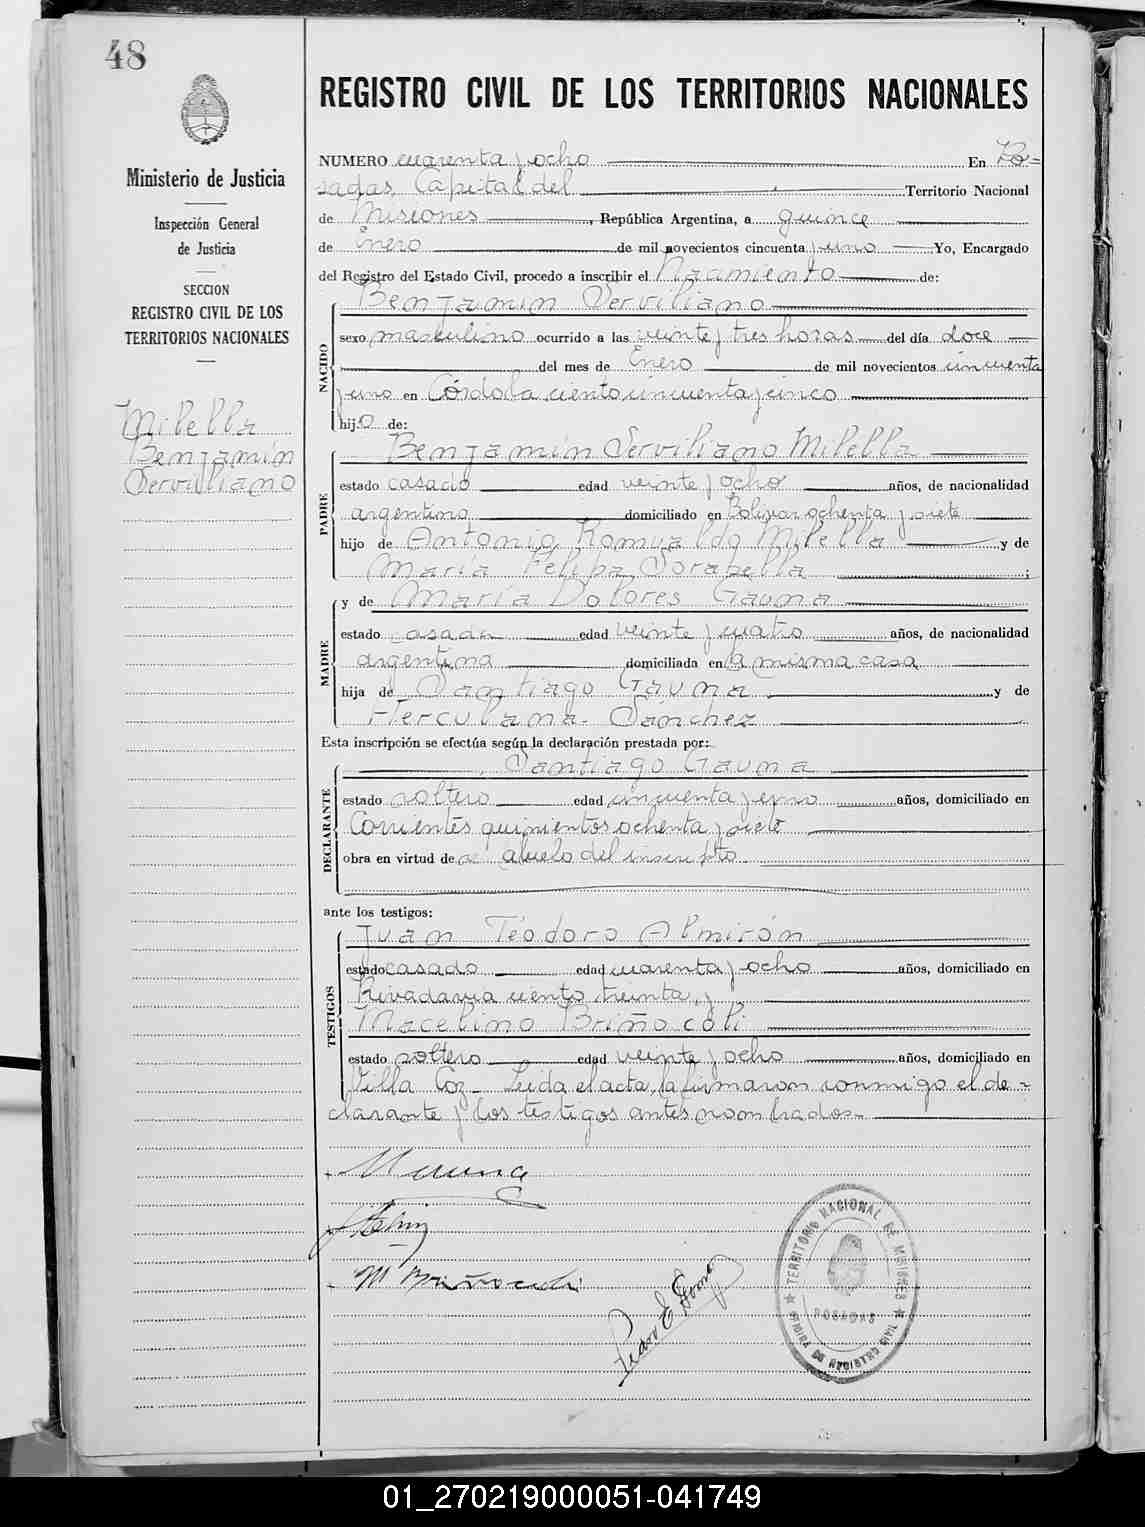 48
REGISTRO CIVIL DE LOS TERRITORIOS NACIONALES
Ministerio de Justicia
Inspección General
de Justicia
SECCION
REGISTRO CIVIL DE LOS
TERRITORIOS NACIONALES
Milella
Benjamín
Serviliano
NUMERO cuarenta y ocho En Po=
sadas, Capital del Territorio Nacional
de Misiones, República Argentina, a quince
de Enero de mil novecientos cincuenta y uno Yo, Encargado
del Registro del Estado Civil, procedo a inscribir el Nacimiento de:
NACIDO
Benjamín Serviliano
sexo masculino ocurrido a las veinte y tres horas del día doce
del mes de Enero de mil novecientos cincuenta
y uno en Córdoba ciento cincuenta y cinco
hijo de:
PADRE
Benjamín Serviliano Milella
estado casado edad veinte y ocho años, de nacionalidad
argentino domiciliado en Bolívar ochenta y siete
hijo de Antonio Romualdo Milella y de
María Felipa Sorabella;
MADRE
y de María Dolores Gauna
estado casada edad veinte y cuatro años, de nacionalidad
argentina domiciliada en la misma casa
hija de Santiago Gauna y de
Herculana Sánchez
Esta inscripción se efectúa según la declaración prestada por:
DECLARANTE
Santiago Gauna
estado soltero edad cincuenta y uno años, domiciliado en
Corrientes quinientos ochenta y siete
obra en virtud de ser abuelo del inscripto
ante los testigos:
TESTIGOS
Juan Teodoro Almirón
estado casado edad cuarenta y ocho años, domiciliado en
Rivadavia ciento treinta, y
Macelino Briñócoli
estado soltero edad veinte y ocho años, domiciliado en
Villa Coz.- Leida el acta, la firmaron conmigo el de-
clarante y los testigos antes nombrados.-
M Briñocoli
Pedro E. Gome
TERRITORIO NACIONAL DE MISIONES
POSADAS
OFICINA DE REGISTRO CIVIL
01_270219000051-041749